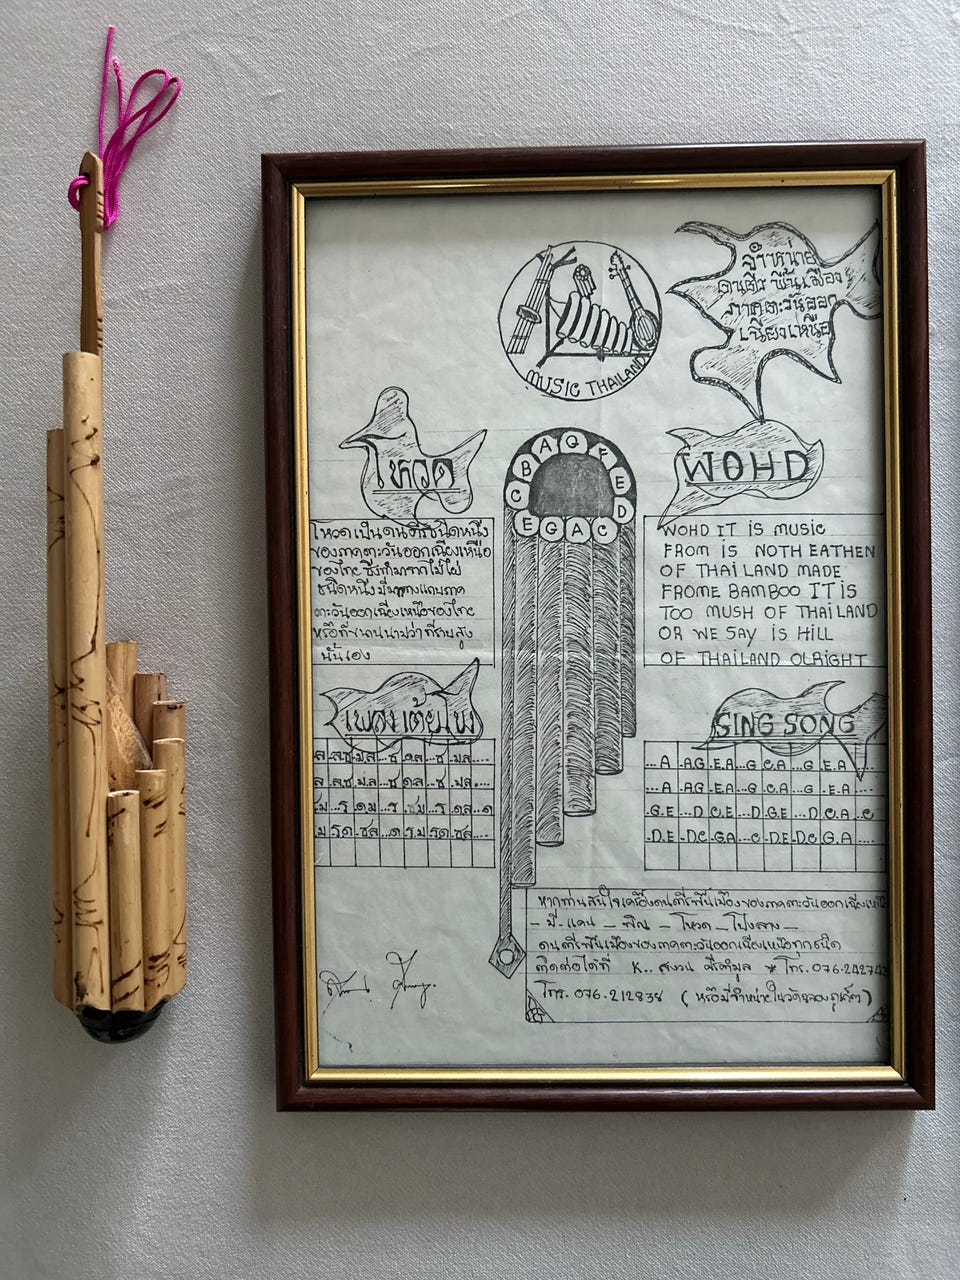 MUSIC THAILAND
จำหน่าย
ดนตรีพื้นเมือง
ภาคตะวันออก
เฉียงเหนือ
โหวด
โหวดเป็นดนตรีชนิดหนึ่ง
ของภาคตะวันออกเฉียงเหนือ
ของไทย ซึ่งทำมาจากไม้ไผ่
ชนิดหนึ่ง มีมากทางแถบภาค
ตะวันออกเฉียงเหนือของไทย
หรือที่ขนานนามว่าที่ราบสูง
นั้นเอง
B A G E D C E G A C
WOHD
WOHD IT IS MUSIC
FROM IS NOTH EATHEN
OF THAILAND MADE
FROME BAMBOO IT IS
TOO MUSH OF THAILAND
OR WE SAY IS HILL
OF THAILAND OLRIGHT
เพลงเต้ย
SING SONG
...A A.G.E.A ...G.C.A ...G E.A...
...A A.G.E.A ...G.C.A ...G.E.A...
.G.E ...D C.E .D.GE ...D.C.A .C
.D.E .D.C .G.A ...C .D.E .D.C .G.A...
หากท่านสนใจเครื่องดนตรีพื้นเมืองของภาคตะวันออกเฉียง
- มี - แคน - พิณ - โหวด - โปงลาง -
ดนตรีพื้นเมืองของภาคตะวันออกเฉียงเหนือทุกชนิด
ติดต่อได้ที่ K.. สงวน โทร. 076-2427
โทร. 076-212838 ( หรือมีจำหน่ายในวัดฉลองภูเก็ต )